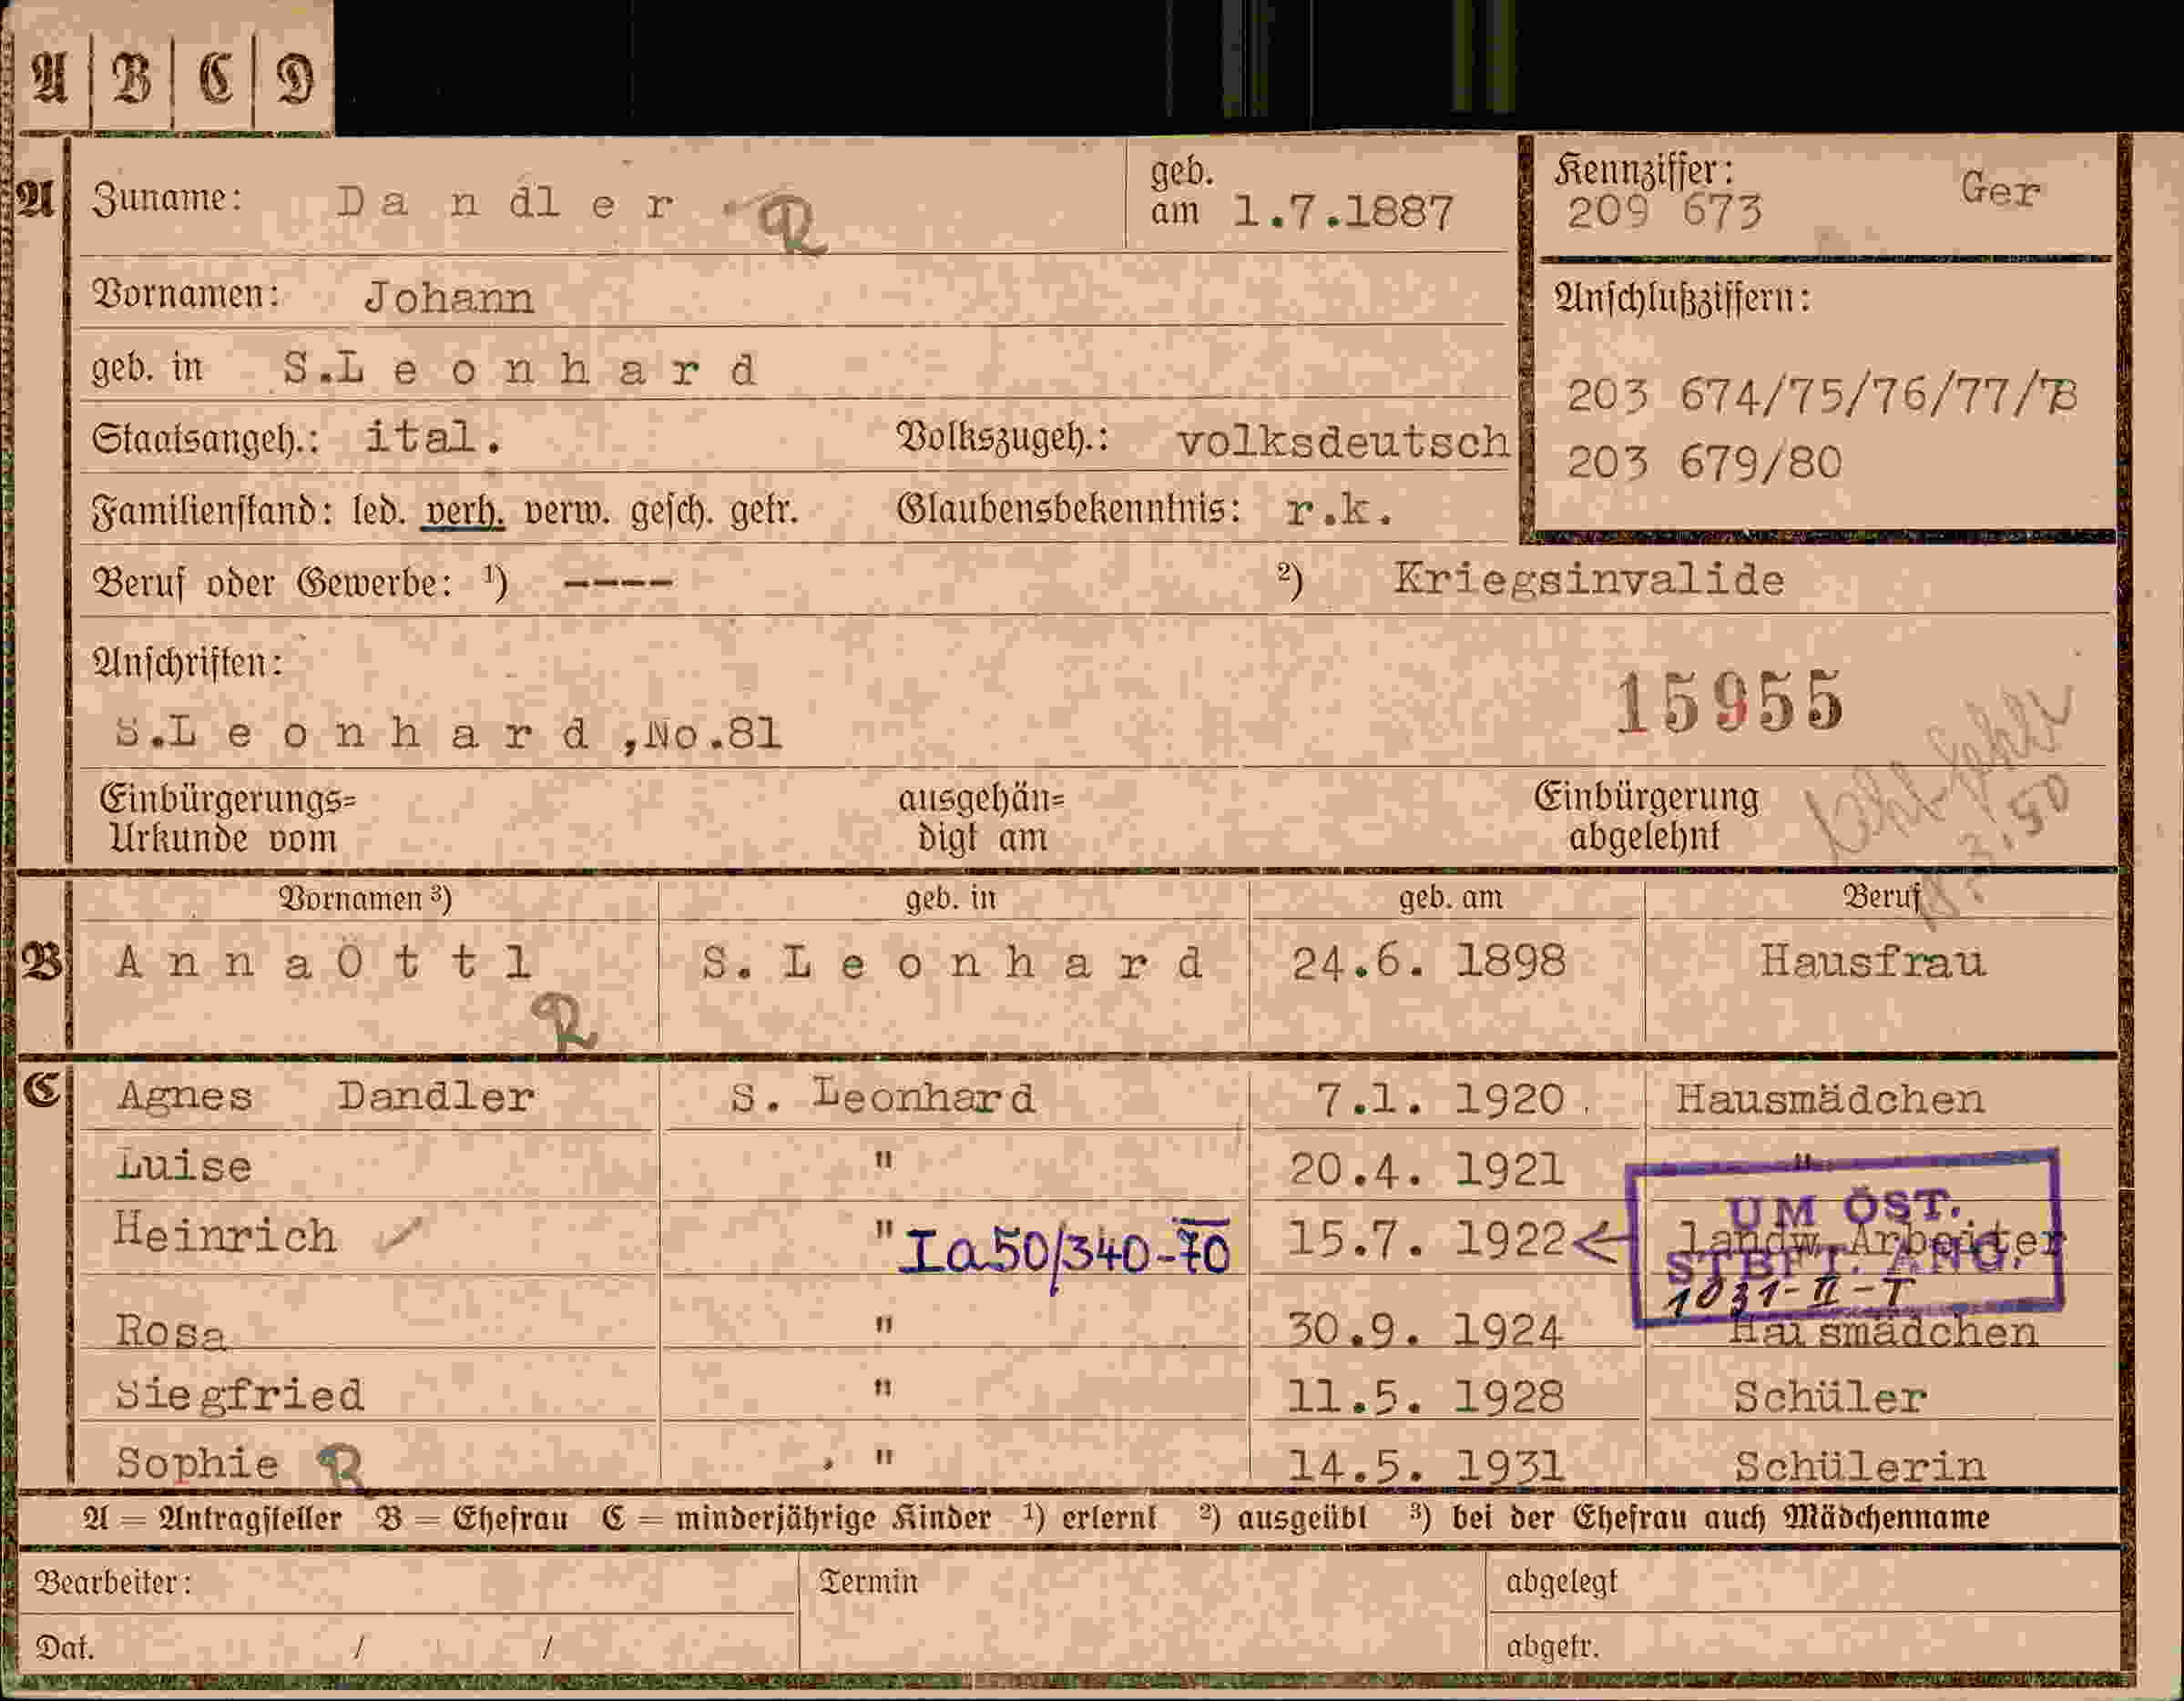 A B C D
A Zuname: Dandler R geb. am 1.7.1887
Kennziffer: 209 673 Ger
Vornamen: Johann
Anschlußziffern:
geb. in S.Leonhard
203 674/75/76/77/78
Staatsangeh.: ital. Volkszugeh.: volksdeutsch
203 679/80
Familienstand: led. verh. verw. gesch. getr. Glaubensbekenntnis: r.k.
Beruf oder Gewerbe: ¹) ---- ²) Kriegsinvalide
Anschriften:
15955
S.Leonhard,No.81
Einbürgerungs= Urkunde vom
ausgehän= digt am
Einbürgerung abgelehnt
3.50
Vornamen ³) geb. in geb. am Beruf
B Anna Ottl S. Leonhard 24.6. 1898 Hausfrau
R
C Agnes Dandler S. Leonhard 7.1. 1920 Hausmädchen
Luise " 20.4. 1921 "
UM ÖST.
Heinrich " Ia50/340-70 15.7. 1922 landw. Arbeiter
STBFT. ANG.
1031-II-T
Rosa " 30.9. 1924 Hausmädchen
Siegfried " 11.5. 1928 Schüler
Sophie R " 14.5. 1931 Schülerin
A = Antragsteller B = Ehefrau C = minderjährige Kinder ¹) erlernt ²) ausgeübt ³) bei der Ehefrau auch Mädchenname
Bearbeiter: Termin abgelegt
Dat. / / abgetr.